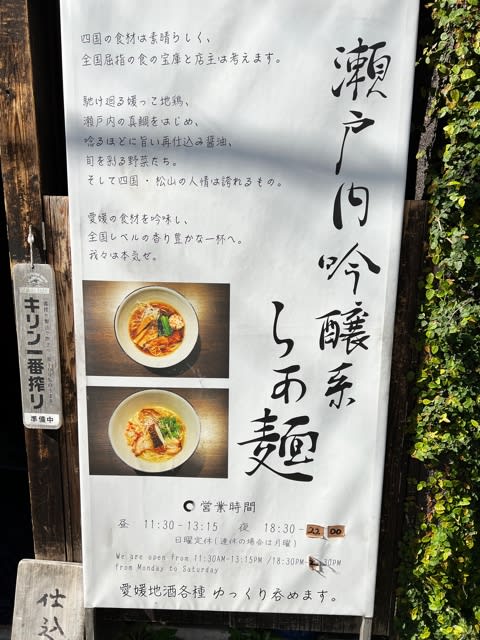 四国の食材は素晴らしく、
全国屈指の食の宝庫と店主は考えます。
馳け廻る媛っこ地鶏、
瀬戸内の真鯛をはじめ、
唸るほどに旨い再仕込み醤油、
旬を彩る野菜たち。
そして四国・松山の人情は誇れるもの。
愛媛の食材を吟味し、
全国レベルの香り豊かな一杯へ。
我々は本気ぜ。
瀬戸内吟醸系
らぁ麺
営業時間
昼 11:30-13:15 夜 18:30-22:00
日曜定休(連休の場合は月曜)
We are open from 11:30AM-13:15PM /18:30PM-
from Monday to Saturday
愛媛地酒各種 ゆっくり呑めます。
キリン一番搾り
準備中
仕込